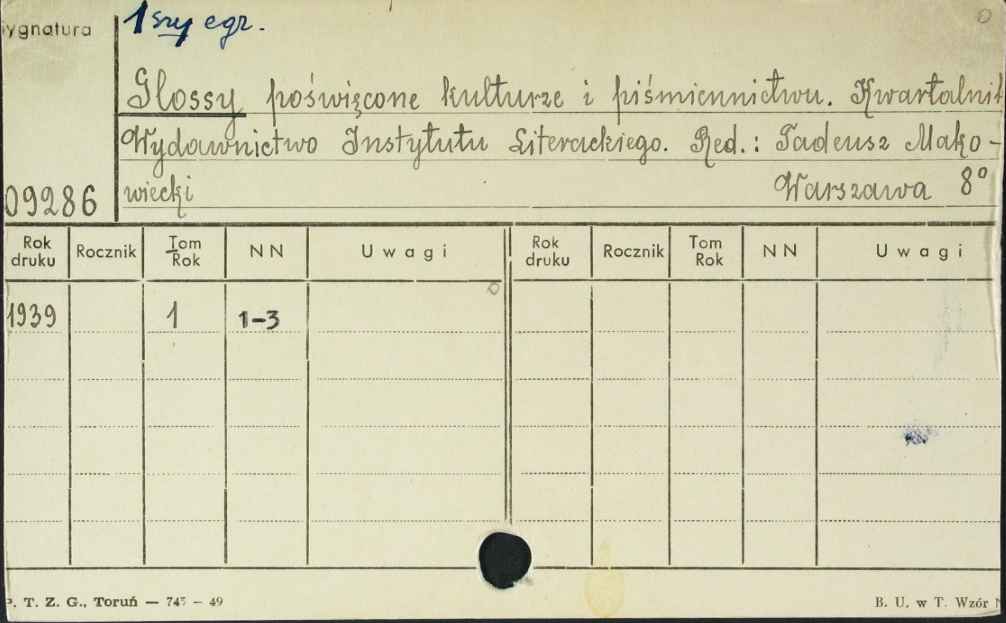 ygnatura
1szy egz.
Glossy poświęcone kulturze i piśmiennictwu. Kwartalnik
Wydawnictwo Instytutu Literackiego. Red.: Tadeusz Mako-
09286
wiecki Warszawa 8°
Rok druku Rocznik Tom Rok NN Uwagi Rok druku Rocznik Tom Rok NN Uwagi
1939 1 1-3
P. T. Z. G., Toruń — 745 — 49 B. U. w T. Wzór